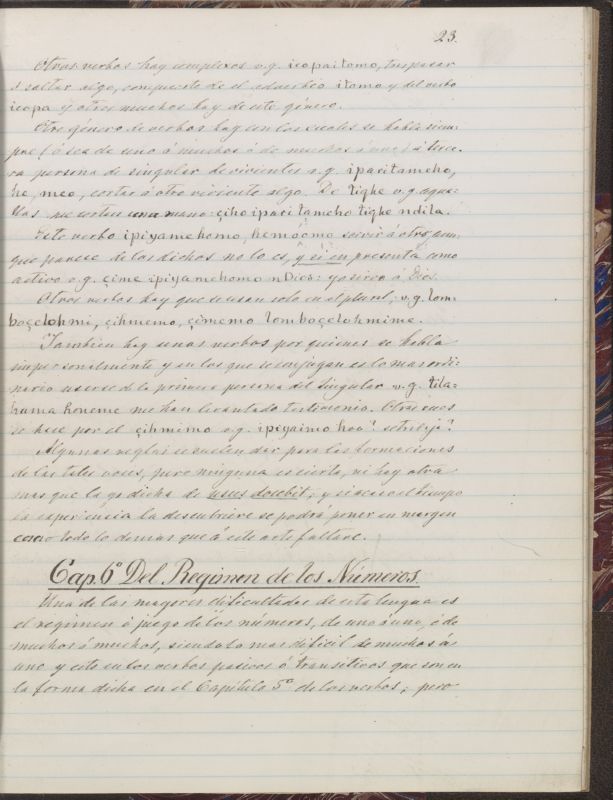 23.
Otros verbos hay complexos v.g. icopaitomo, traspasar
ó saltar algo, compuesto de el adverbio itomo y del verbo
icopa y otros muchos hay de este género.
Otro género de verbos hay con los cuales se habla siem-
pre (ó sea de uno á muchos ó de muchos á uno) á terce-
ra persona de singular de vivientes v.g. iparitameho,
he, meo, cortar á otro viviente algo. De tiqhe v.g. aque-
llos me cortan una mano: çiho ipari tameho tiqhe ndita.
Este verbo ipiyamehomo, hemoomo servir á otro, aun-
que parece de los dichos no lo es, y si en presenta como
activo v.g. çime ipiyamehomo nDios: yo sirvo á Dios.
Otros verbos hay que se usan solo en el plural, v.g. lom-
boçelohmi, çihmemo, çimemo lomboçelohmime.
Tambien hay unos verbos por quienes se habla
impersonalmente y en los que se conjugan es lo mas ordi-
nario usarse de la primera persona del singular v.g. tila-
hama honeme me han levantado testimonio. Otras veces
se hace por el çihmimo v.g. ipiyaimo hoa?
Algunas reglas se suelen dar para las formaciones
de las tales voces, pero ninguna es cierta, ni hay otra
mas que la ya dicha de usus docebit, y si acaso el tiempo
la experiencia la descubriere se podrá poner en margen
como todo lo demas que á este arte faltare.
Cap. 6º Del Regimen de los Números.
Una de las mayores dificultades de esta lengua es
el regimen ó juego de los números, de uno á uno, ó de
muchos á muchos, siendo lo mas dificil de muchos á
uno y esto en los verbos pasivos ó transitivos que son en
la forma dicha en el Capítulo 5º de los verbos, pero